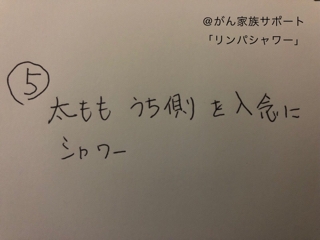 @がん家族サポート
「リンパシャワー」
⑤
太もも うち側 を 入念に
シャワー